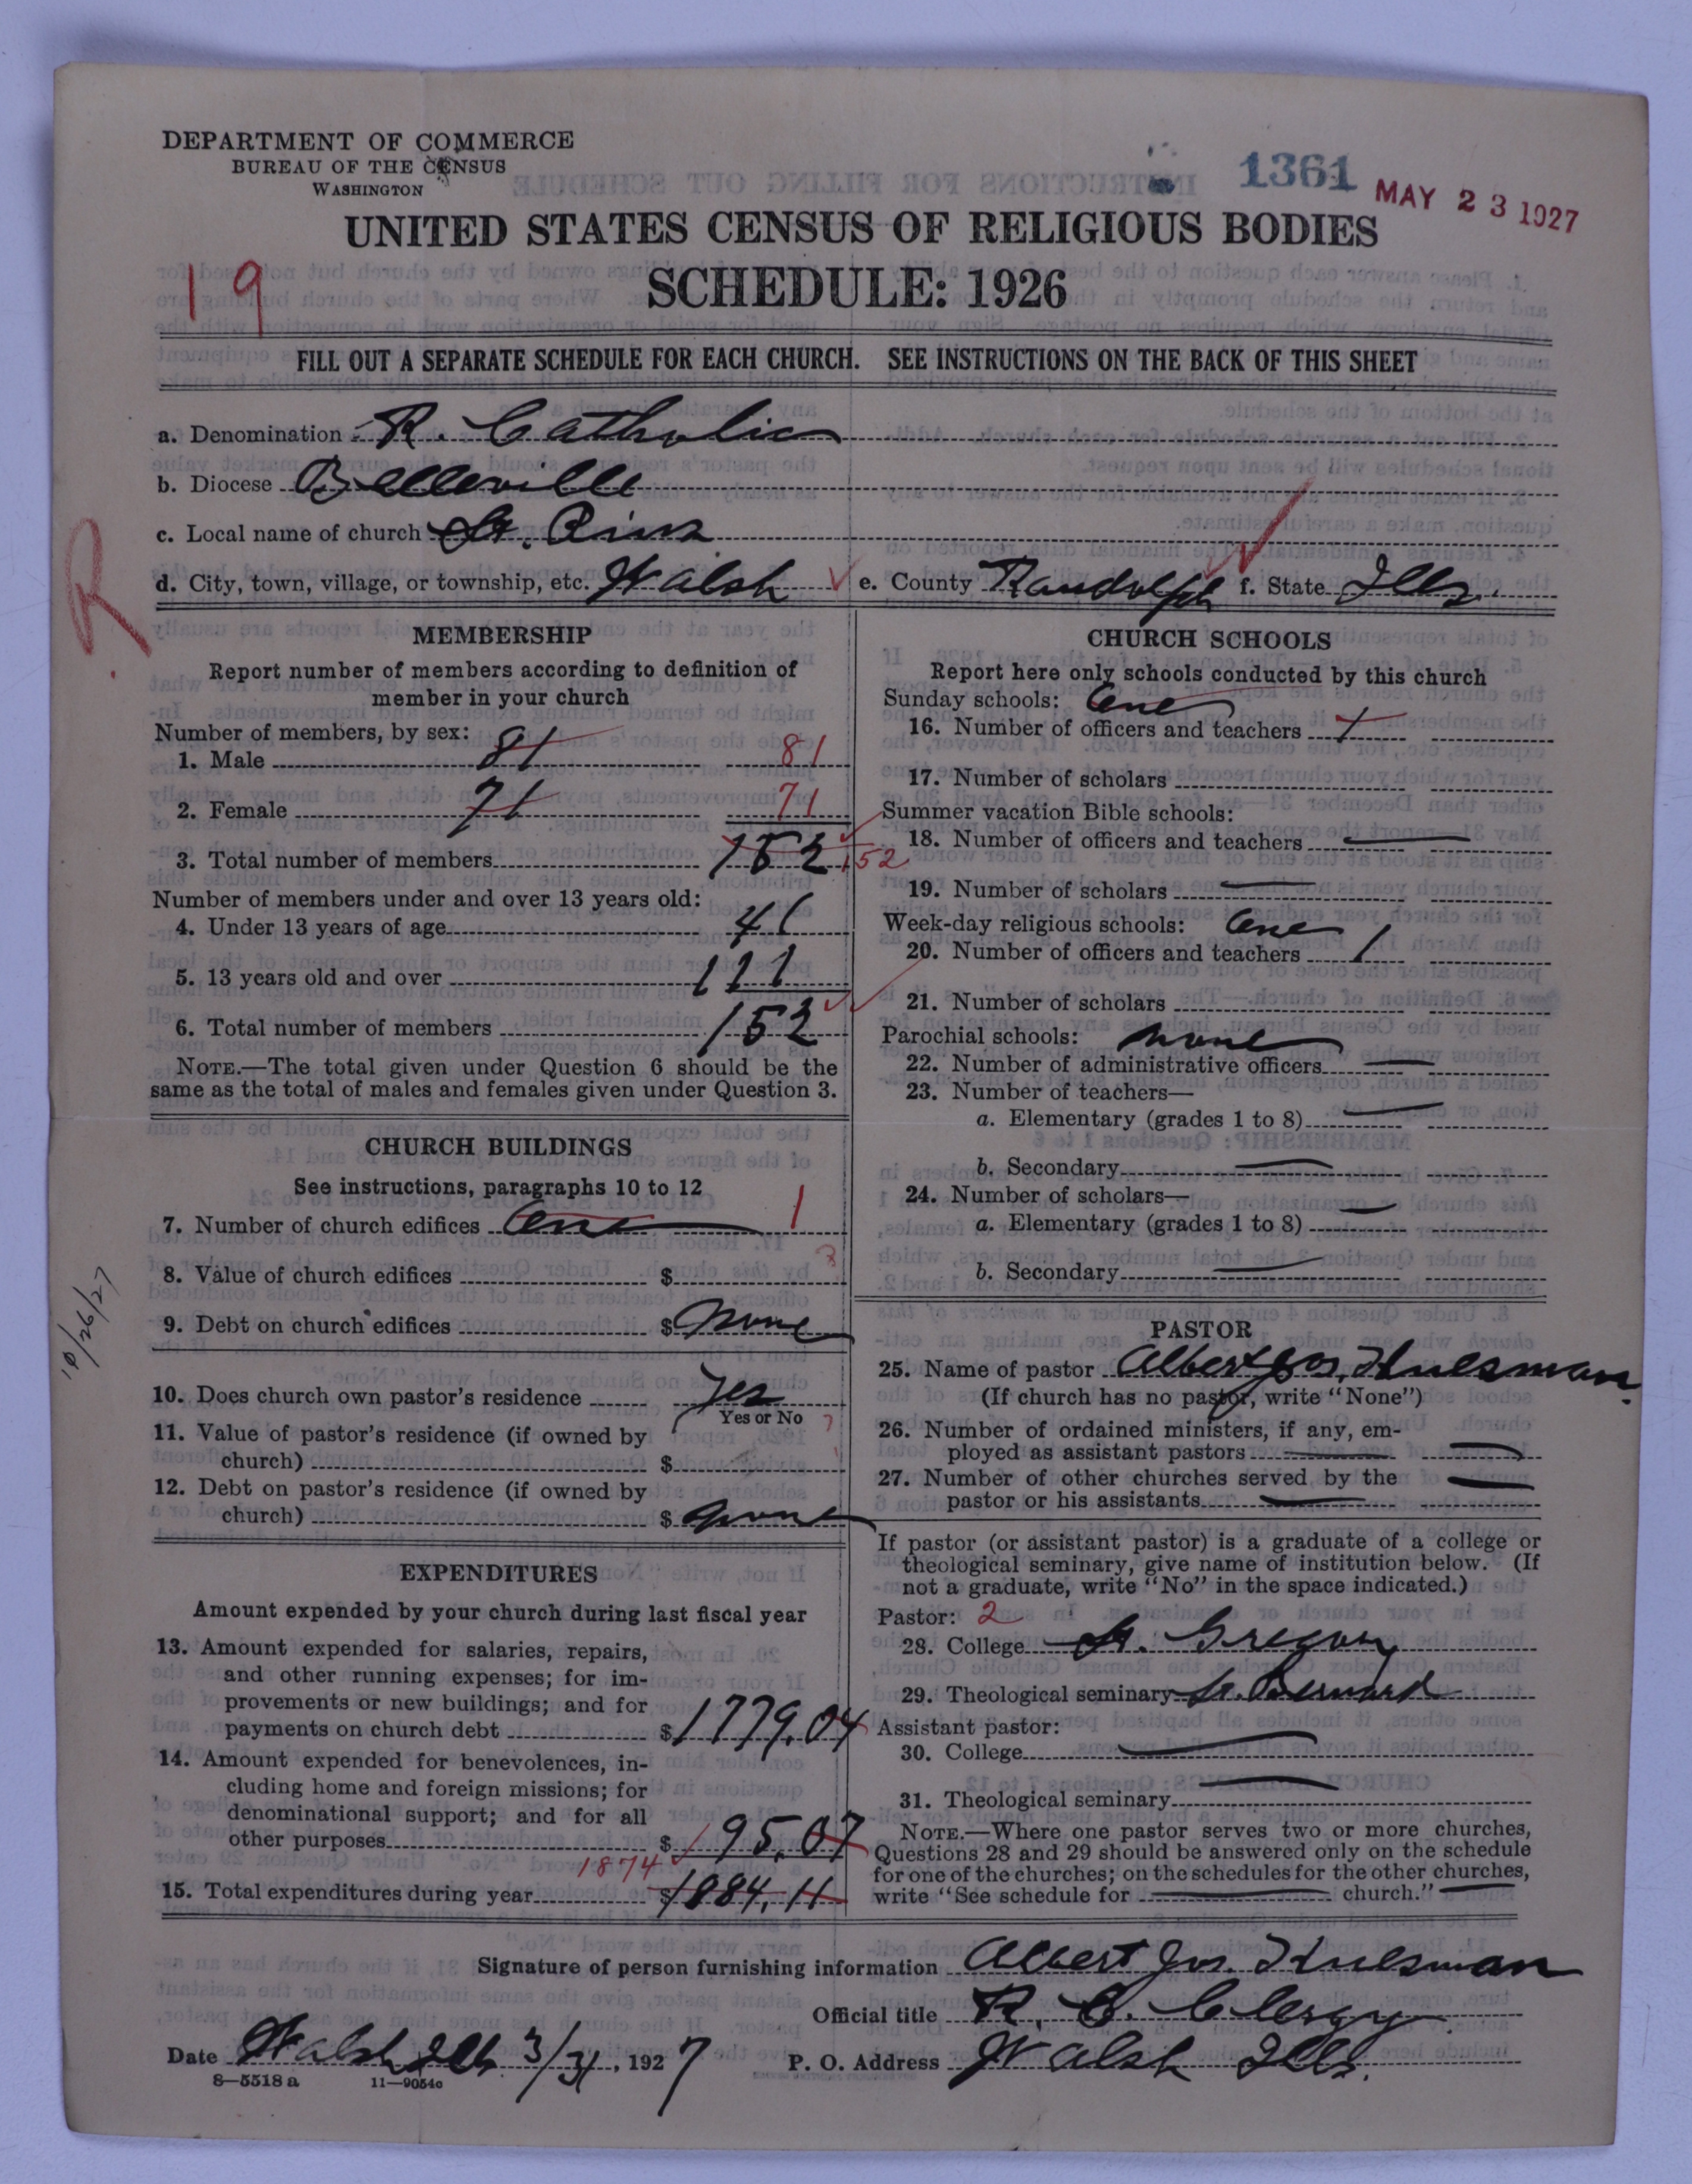 DEPARTMENT OF COMMERCE
BUREAU OF THE CENSUS
WASHINGTON
1361
MAY 23 1927
UNITED STATES CENSUS OF RELIGIOUS BODIES
19
SCHEDULE: 1926
FILL OUT A SEPARATE SCHEDULE FOR EACH CHURCH. SEE INSTRUCTIONS ON THE BACK OF THIS SHEET
a. Denomination R. Catholic
b. Diocese Belleville
c. Local name of church St. Pius
R
d. City, town, village, or township, etc. Walsh e. County Randolph f. State Ills.
MEMBERSHIP
Report number of members according to definition of
member in your church
Number of members, by sex:
1. Male 81 81
2. Female 71 71
3. Total number of members 152 152
Number of members under and over 13 years old:
4. Under 13 years of age 41
5. 13 years old and over 111
6. Total number of members 152
NOTE.—The total given under Question 6 should be the
same as the total of males and females given under Question 3.
CHURCH BUILDINGS
See instructions, paragraphs 10 to 12
7. Number of church edifices One 1
8. Value of church edifices $
9. Debt on church edifices $ None
10/26/27
10. Does church own pastor's residence Yes
Yes or No
11. Value of pastor's residence (if owned by
church) $
12. Debt on pastor's residence (if owned by
church) $ None
EXPENDITURES
Amount expended by your church during last fiscal year
13. Amount expended for salaries, repairs,
and other running expenses; for im-
provements or new buildings; and for
payments on church debt $1779.04
14. Amount expended for benevolences, in-
cluding home and foreign missions; for
denominational support; and for all
other purposes $ 95.07
1874
15. Total expenditures during year $1884.11
CHURCH SCHOOLS
Report here only schools conducted by this church
Sunday schools: One
16. Number of officers and teachers 1
17. Number of scholars
Summer vacation Bible schools:
18. Number of officers and teachers —
19. Number of scholars —
Week-day religious schools: One
20. Number of officers and teachers 1
21. Number of scholars
Parochial schools: None
22. Number of administrative officers —
23. Number of teachers—
a. Elementary (grades 1 to 8) —
b. Secondary —
24. Number of scholars—
a. Elementary (grades 1 to 8) —
b. Secondary —
PASTOR
25. Name of pastor Albert Jos. Hulsman.
(If church has no pastor, write "None")
26. Number of ordained ministers, if any, em-
ployed as assistant pastors — —
27. Number of other churches served by the
pastor or his assistants — —
If pastor (or assistant pastor) is a graduate of a college or
theological seminary, give name of institution below. (If
not a graduate, write "No" in the space indicated.)
Pastor: 2
28. College St. Gregory
29. Theological seminary St. Bernard
Assistant pastor:
30. College —
31. Theological seminary —
NOTE.—Where one pastor serves two or more churches,
Questions 28 and 29 should be answered only on the schedule
for one of the churches; on the schedules for the other churches,
write "See schedule for — church." —
Signature of person furnishing information Albert Jos. Hulsman
Official title R. C. Clergy
Date Walsh Ills. 3/31, 1927 P. O. Address Walsh Ills.
8—5518 a 11—9054c